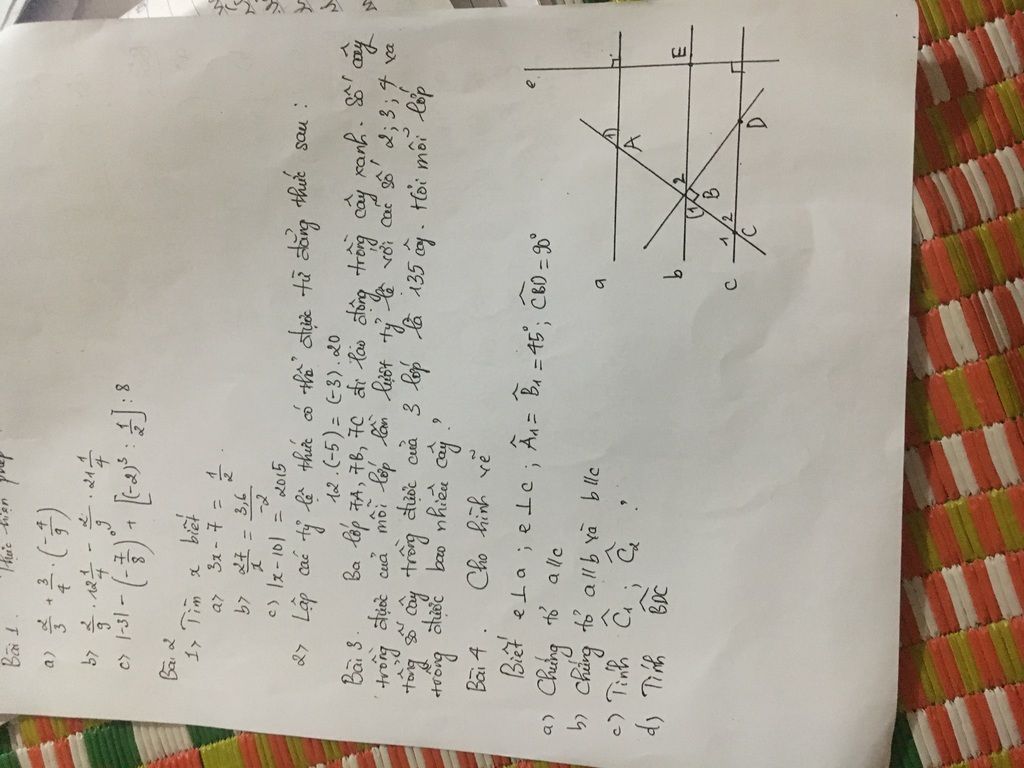 Bài 1. Thực hiện phép
a) 2/3 + 3/4 . (-4/9)
b) 2/9 . 12 1/4 - 2/9 . 21 1/4
c) |-3| - (-7/8)^0 + [(-2)^3 : 1/2] : 8
Bài 2
1> Tìm x biết
a> 3x - 7 = 1/2.
b> 27/x = 3,6/-2
c> |x - 10| = 2015
2> Lập các tỷ lệ thức có thể được từ đẳng thức sau:
12.(-5) = (-3).20
Bài 3. Ba lớp 7A, 7B, 7C đi lao động trồng cây xanh. Số cây
trồng được của mỗi lớp lần lượt tỷ lệ với các số 2; 3; 4 và
tổng số cây trồng được của 3 lớp là 135 cây. Hỏi mỗi lớp
trồng được bao nhiêu cây?
Bài 4. Cho hình vẽ
Biết e⊥a; e⊥c; Â1 = B̂1 = 45°; ĈBD = 90°
a) Chứng tỏ a//c
b) Chứng tỏ a//b và b//c
c) Tính Ĉ1; Ĉ2
d) Tính B̂DC?
e
a
1
A
b
1
2
B
E
c
1
2
C
D